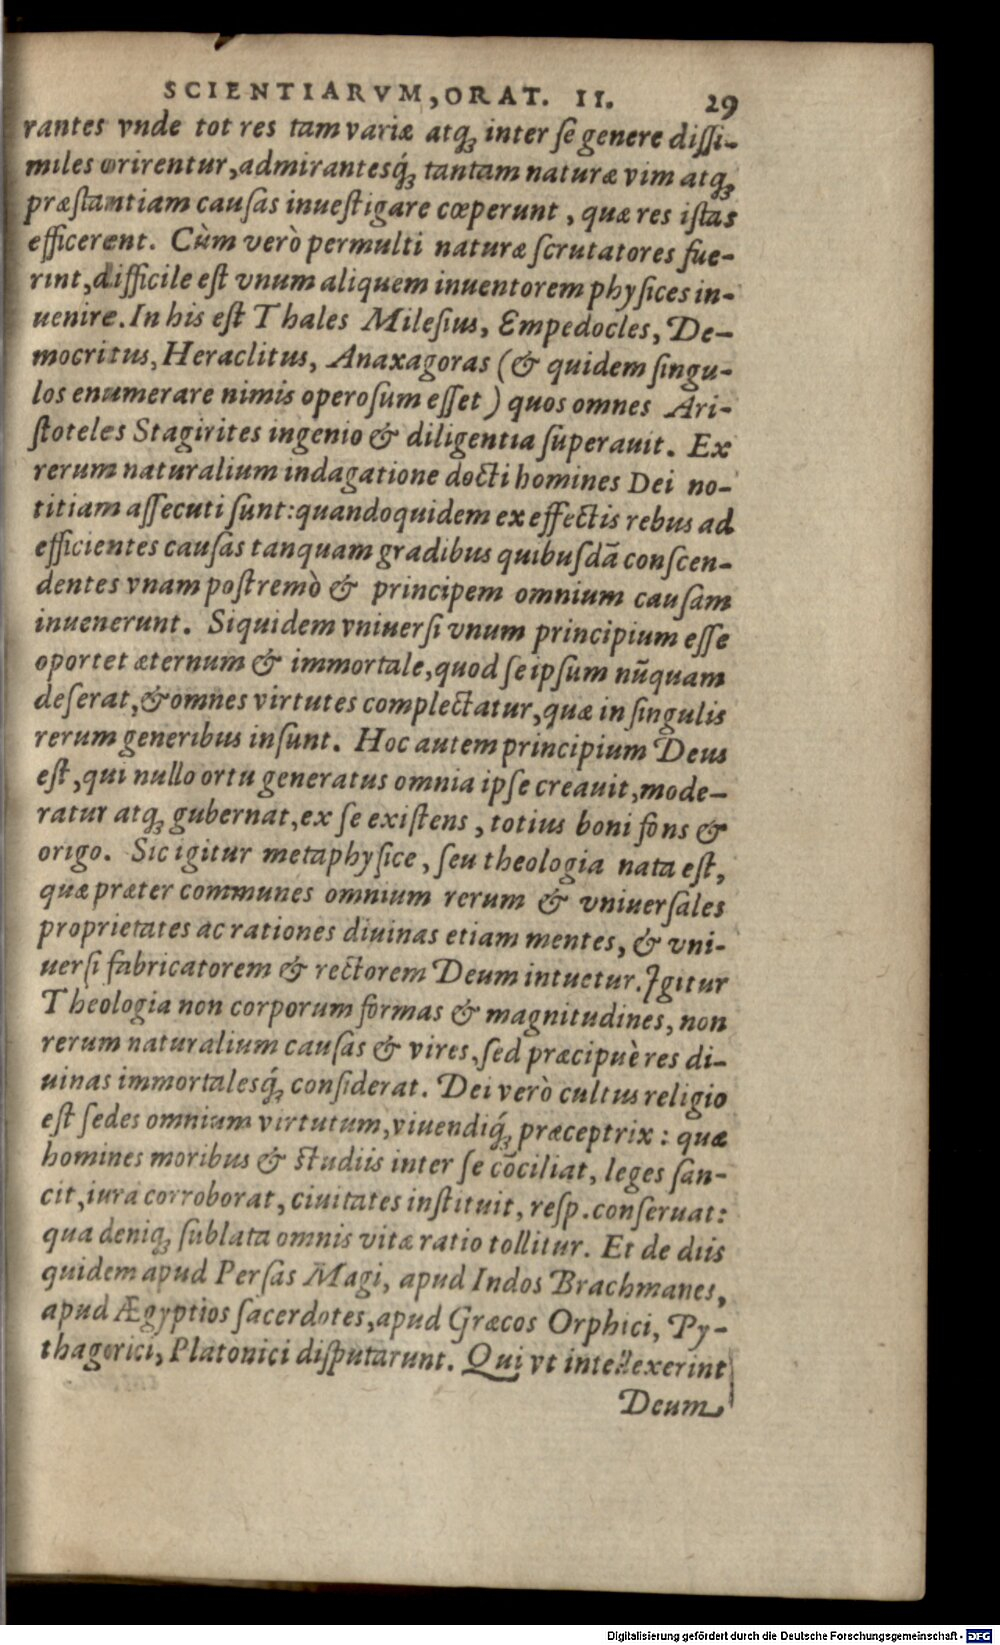 SCIENTIARVM, ORAT. II. 29
rantes vnde tot res tam variæ atq; inter ſe genere diſſi-
miles orirentur, admirantesq́; tantam naturæ vim atq;
præſtantiam cauſas inueſtigare cœperunt, quæ res iſtas
efficerent. Cùm verò permulti naturæ ſcrutatores fue-
rint, difficile eſt vnum aliquem inuentorem phyſices in-
uenire. In his eſt Thales Mileſius, Empedocles, De-
mocritus, Heraclitus, Anaxagoras (& quidem ſingu-
los enumerare nimis operoſum eſſet) quos omnes Ari-
ſtoteles Stagirites ingenio & diligentia ſuperauit. Ex
rerum naturalium indagatione docti homines Dei no-
titiam aſſecuti ſunt: quandoquidem ex effectis rebus ad
efficientes cauſas tanquam gradibus quibuſdã conſcen-
dentes vnam poſtremò & principem omnium cauſam
inuenerunt. Siquidem vniuerſi vnum principium eſſe
oportet æternum & immortale, quod ſeipſum nũquam
deſerat, & omnes virtutes complectatur, quæ in ſingulis
rerum generibus inſunt. Hoc autem principium Deus
eſt, qui nullo ortu generatus omnia ipſe creauit, mode-
ratur atq; gubernat, ex ſe exiſtens, totius boni fons &
origo. Sic igitur metaphyſice, ſeu theologia nata eſt,
quæ præter communes omnium rerum & vniuerſales
proprietates ac rationes diuinas etiam mentes, & vni-
uerſi fabricatorem & rectorem Deum intuetur. Igitur
Theologia non corporum formas & magnitudines, non
rerum naturalium cauſas & vires, ſed præcipuè res di-
uinas immortalesq́; conſiderat. Dei verò cultus religio
eſt ſedes omnium virtutum, viuendiq́; præceptrix: quæ
homines moribus & ſtudiis inter ſe cõciliat, leges ſan-
cit, iura corroborat, ciuitates inſtituit, reſp. conſeruat:
qua deniq; ſublata omnis vitæ ratio tollitur. Et de diis
quidem apud Perſas Magi, apud Indos Brachmanes,
apud Ægyptios ſacerdotes, apud Græcos Orphici, Py-
thagorici, Platonici diſputarunt. Qui vt intellexerint
Deum
Digitalisierung gefördert durch die Deutsche Forschungsgemeinschaft - DFG